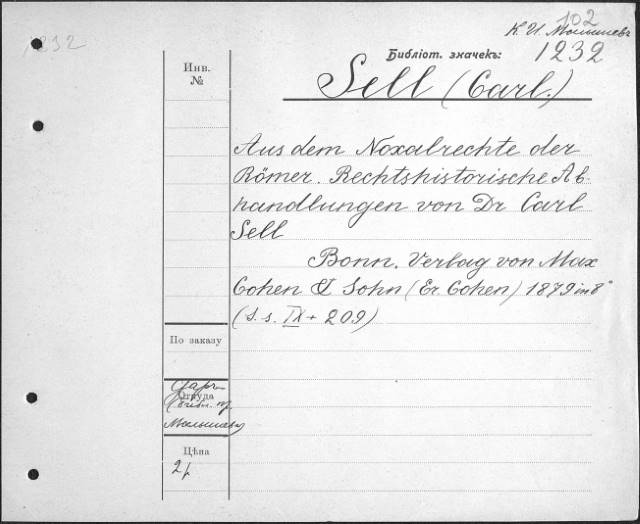 102
К. И. Малышевъ
1232
Библіот. значекъ:
1232
Инв.
№
Sell (Carl.)
Aus dem Noxalrechte der
Römer. Rechtshistorische Ab-
handlungen von Dr Carl
Sell
Bonn. Verlag von Max
Cohen & Sohn (Er. Cohen) 1879 in 8°
(S. s. IX + 209)
По заказу
Откуда
Малышева
Цѣна
2 р